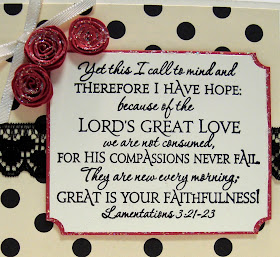 Yet this I call to mind and
THEREFORE I HAVE HOPE:
because of the
LORD'S GREAT LOVE
we are not consumed,
FOR HIS COMPASSIONS NEVER FAIL.
They are new every morning;
GREAT IS YOUR FAITHFULNESS!
Lamentations 3:21-23